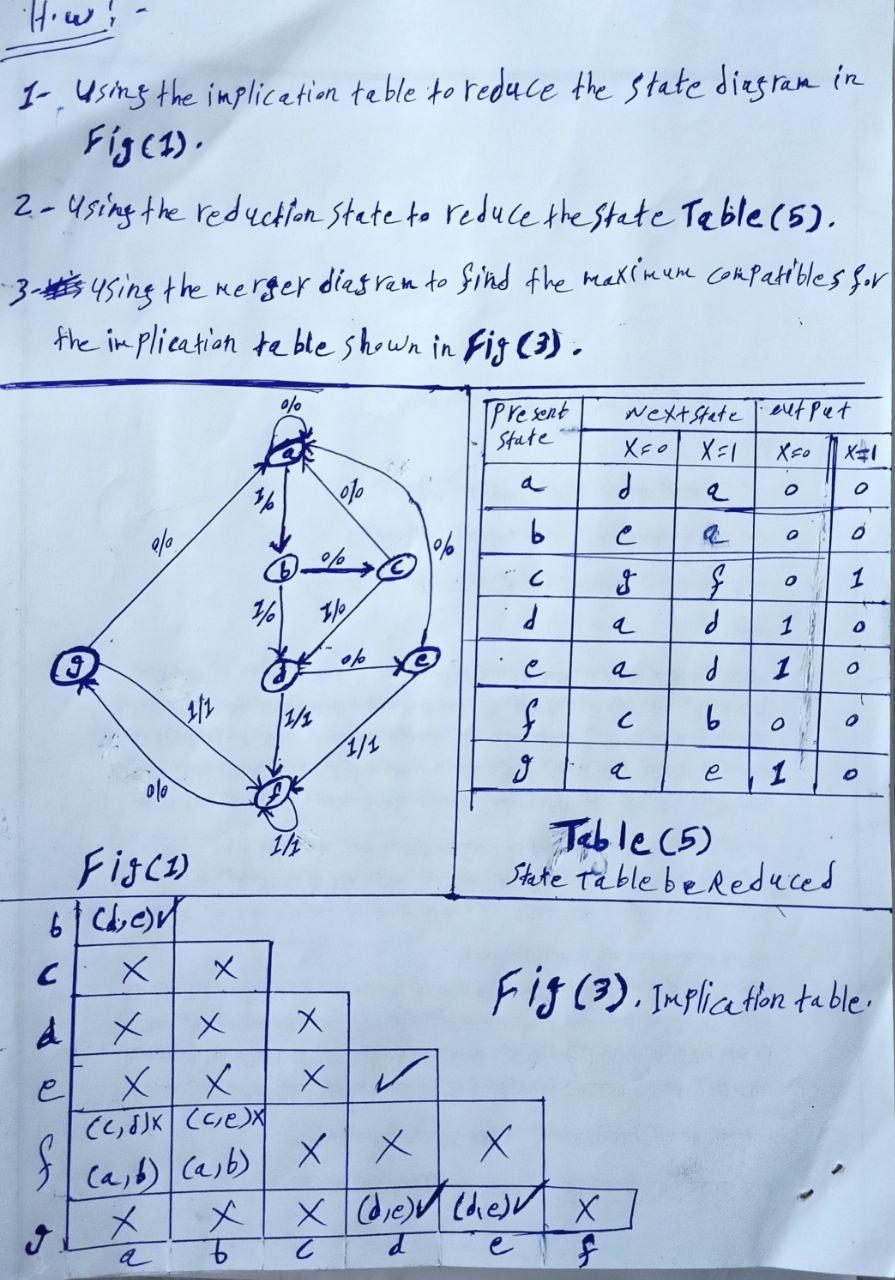 H.w! -
1- Using the implication table to reduce the state diagram in
Fig(1).
2- Using the reduction state to reduce the state Table(5).
3- Using the merger diagram to find the maximum compatibles for
the implication table shown in Fig(3).
0/0
a
1/0
0/0
0/0
0/0
b
0/0
c
1/0
1/0
g
d
0/0
e
1/1
1/1
1/1
0/0
f
1/1
Fig(1)
Present state | Next state | output
X=0 | X=1 | X=0 | X=1
a | d | a | 0 | 0
b | e | a | 0 | 0
c | g | f | 0 | 1
d | a | d | 1 | 0
e | a | d | 1 | 0
f | c | b | 0 | 0
g | a | e | 1 | 0
Table(5)
State Table be Reduced
Fig(3). Implication table.
b | (d,e)✓
c | X | X
d | X | X | X
e | X | X | X | ✓
f | (c,d)X (a,b) | (c,e)X (a,b) | X | X | X
g | X | X | X | (d,e)✓ | (d,e)✓ | X
a b c d e f